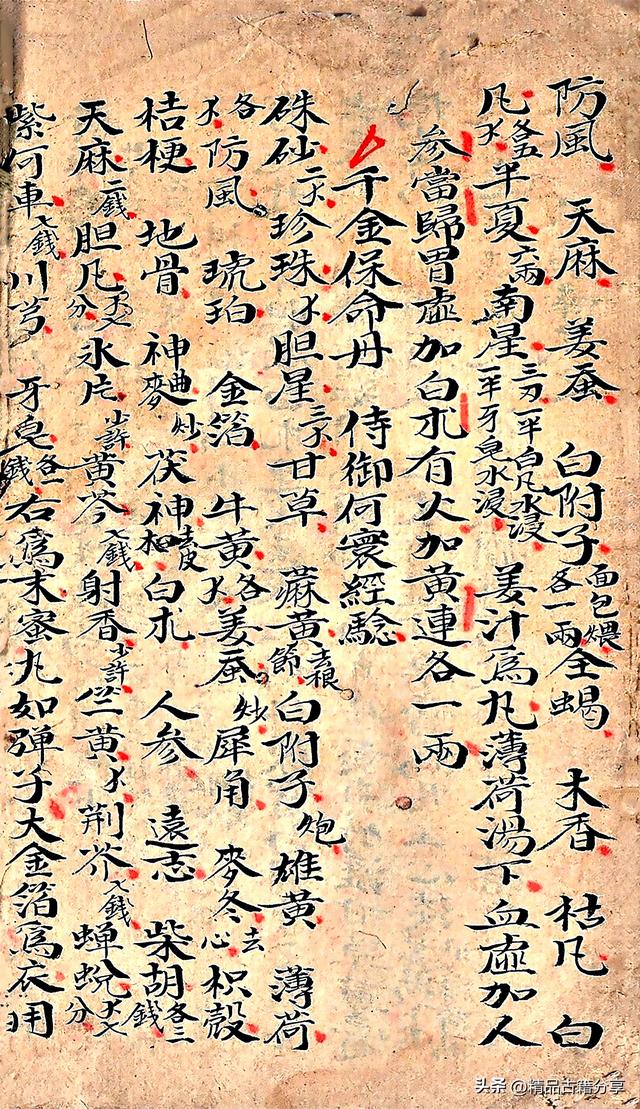 防風 天麻 姜蚕 白附子面包煨各一兩全蝎 木香 枯凡 白
凡各五半夏六兩南星三刃一平白凡水浸一平牙皂水浸 姜汁為丸薄荷湯下血虛加人
參當歸胃虛加白朮有火加黃連各一兩
千金保命丹 侍御何寰經驗
硃砂二珍珠胆星三甘草 蔴黃去根節白附子炮雄黃 薄荷
各防風 琥珀 金箔 牛黃各姜蚕炒犀角 麥冬去心枳殼
桔梗 地骨 神曲麥炒茯神去皮白朮 人參 遠志 柴胡各二錢
天麻二錢胆凡分氷片小許黃芩七錢射香小許竺黃荆芥七錢蝉蜕分
紫河車七錢川芎 牙皂各一錢右為末蜜丸如弹子大金箔為衣用
头条 @精品古籍分享